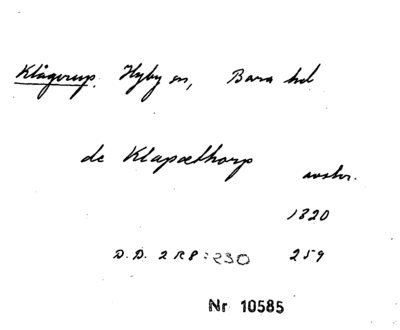 Klågerup. Hyby sn, Bara hd
de Klapæthorp
avskr.
1320
D.D. 2 R 8:230 259
Nr 10585